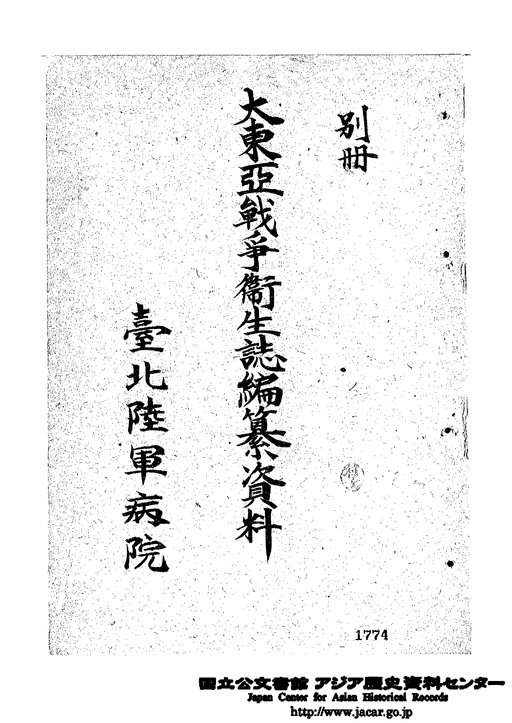 別冊
大東亞戦爭衞生誌編纂資料
臺北陸軍病院
1774
国立公文書館 アジア歴史資料センター
Japan Center for Asian Historical Records
http://www.jacar.go.jp